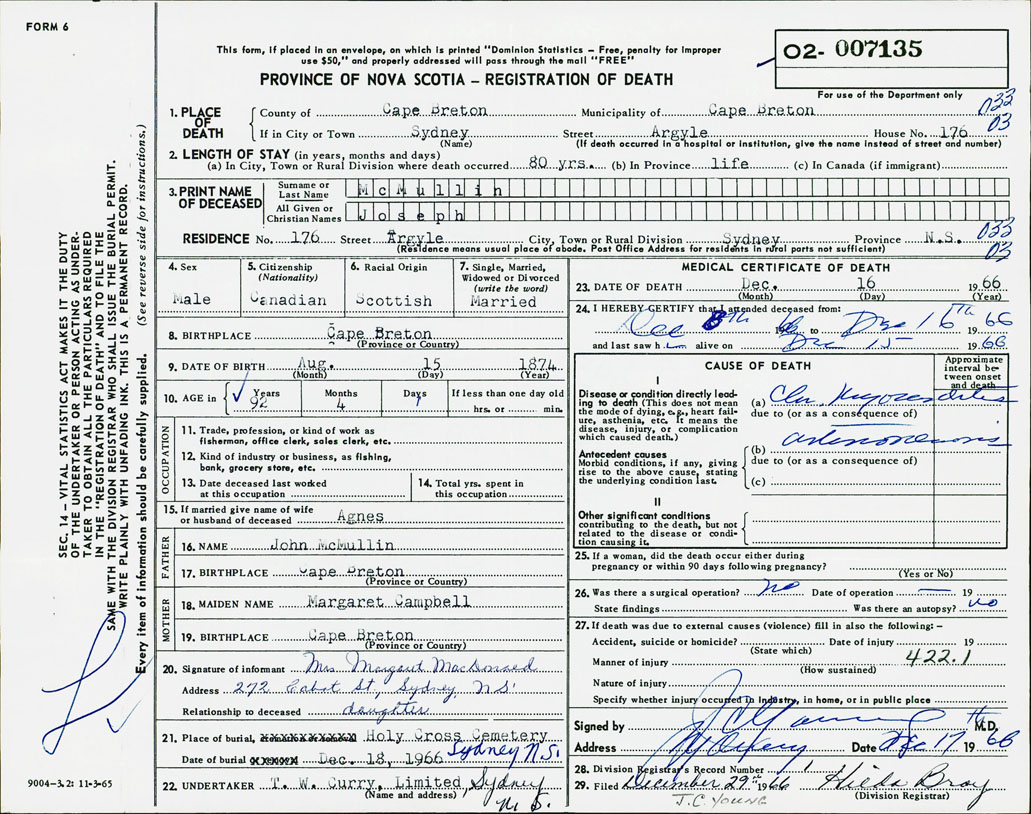 FORM 6
This form, if placed in an envelope, on which is printed "Dominion Statistics – Free, penalty for improper
use $50," and properly addressed will pass through the mail "FREE"
PROVINCE OF NOVA SCOTIA – REGISTRATION OF DEATH
O2- 007135
For use of the Department only
033
03
1. PLACE OF DEATH
County of Cape Breton Municipality of Cape Breton
If in City or Town Sydney Street Argyle House No. 176
(Name) (If death occurred in a hospital or institution, give the name instead of street and number)
2. LENGTH OF STAY (in years, months and days)
(a) In City, Town or Rural Division where death occurred 80 yrs. (b) In Province life (c) In Canada (if immigrant)
3. PRINT NAME OF DECEASED
Surname or Last Name McMullin
All Given or Christian Names Joseph
RESIDENCE No. 176 Street Argyle City, Town or Rural Division Sydney Province N.S.
(Residence means usual place of abode. Post Office Address for residents in rural parts not sufficient)
033
03
4. Sex
Male
5. Citizenship
(Nationality)
Canadian
6. Racial Origin
Scottish
7. Single, Married,
Widowed or Divorced
(write the word)
Married
8. BIRTHPLACE Cape Breton
(Province or Country)
9. DATE OF BIRTH Aug. 15 1874
(Month) (Day) (Year)
10. AGE in Years Months Days If less than one day old
92 4 1 hrs. or min.
OCCUPATION
11. Trade, profession, or kind of work as
fisherman, office clerk, sales clerk, etc.
12. Kind of industry or business, as fishing,
bank, grocery store, etc.
13. Date deceased last worked
at this occupation
14. Total yrs. spent in
this occupation
15. If married give name of wife
or husband of deceased Agnes
FATHER
16. NAME John McMullin
17. BIRTHPLACE Cape Breton
(Province or Country)
MOTHER
18. MAIDEN NAME Margaret Campbell
19. BIRTHPLACE Cape Breton
(Province or Country)
20. Signature of informant Mrs Margaret
Address 272 Cabot St, Sydney, N.S.
Relationship to deceased daughter
21. Place of burial, Holy Cross Cemetery
Sydney N.S.
Date of burial Dec. 18, 1966
22. UNDERTAKER T. W. Curry, Limited, Sydney
(Name and address) N. S.
MEDICAL CERTIFICATE OF DEATH
23. DATE OF DEATH Dec. 16 1966
(Month) (Day) (Year)
24. I HEREBY CERTIFY that I attended deceased from:
Dec 8th 19 to Dec 16th 1966
and last saw him alive on Dec 15 1966
CAUSE OF DEATH
Approximate
interval be-
tween onset
and death
I
Disease or condition directly lead-
ing to death (This does not mean
the mode of dying, e.g., heart fail-
ure, asthenia, etc. It means the
disease, injury, or complication
which caused death.)
(a) Chr. Myocarditis
due to (or as a consequence of)
Antecedent causes
Morbid conditions, if any, giving
rise to the above cause, stating
the underlying condition last.
(b)
due to (or as a consequence of)
(c)
II
Other significant conditions
contributing to the death, but not
related to the disease or condi-
tion causing it.
25. If a woman, did the death occur either during
pregnancy or within 90 days following pregnancy?
(Yes or No)
26. Was there a surgical operation? no Date of operation — 19
State findings Was there an autopsy? no
27. If death was due to external causes (violence) fill in also the following:–
Accident, suicide or homicide? Date of injury 19
(State which)
Manner of injury 422.1
(How sustained)
Nature of injury
Specify whether injury occurred in industry, in home, or in public place
Signed by J C Young M.D.
Address Date Dec 17 1966
28. Division Registrar's Record Number
29. Filed December 29th 1966 Hilda Bray
(Division Registrar)
J.C. YOUNG
9004–3.2: 11-3-65
SEC. 14 – VITAL STATISTICS ACT MAKES IT THE DUTY
OF THE UNDERTAKER OR PERSON ACTING AS UNDER-
TAKER TO OBTAIN ALL THE PARTICULARS REQUIRED
IN THE "REGISTRATION OF DEATH" AND TO FILE THE
SAME WITH THE DIVISION REGISTRAR WHO SHALL ISSUE THE BURIAL PERMIT.
WRITE PLAINLY WITH UNFADING INK. THIS IS A PERMANENT RECORD.
Every item of information should be carefully supplied. (See reverse side for instructions.)